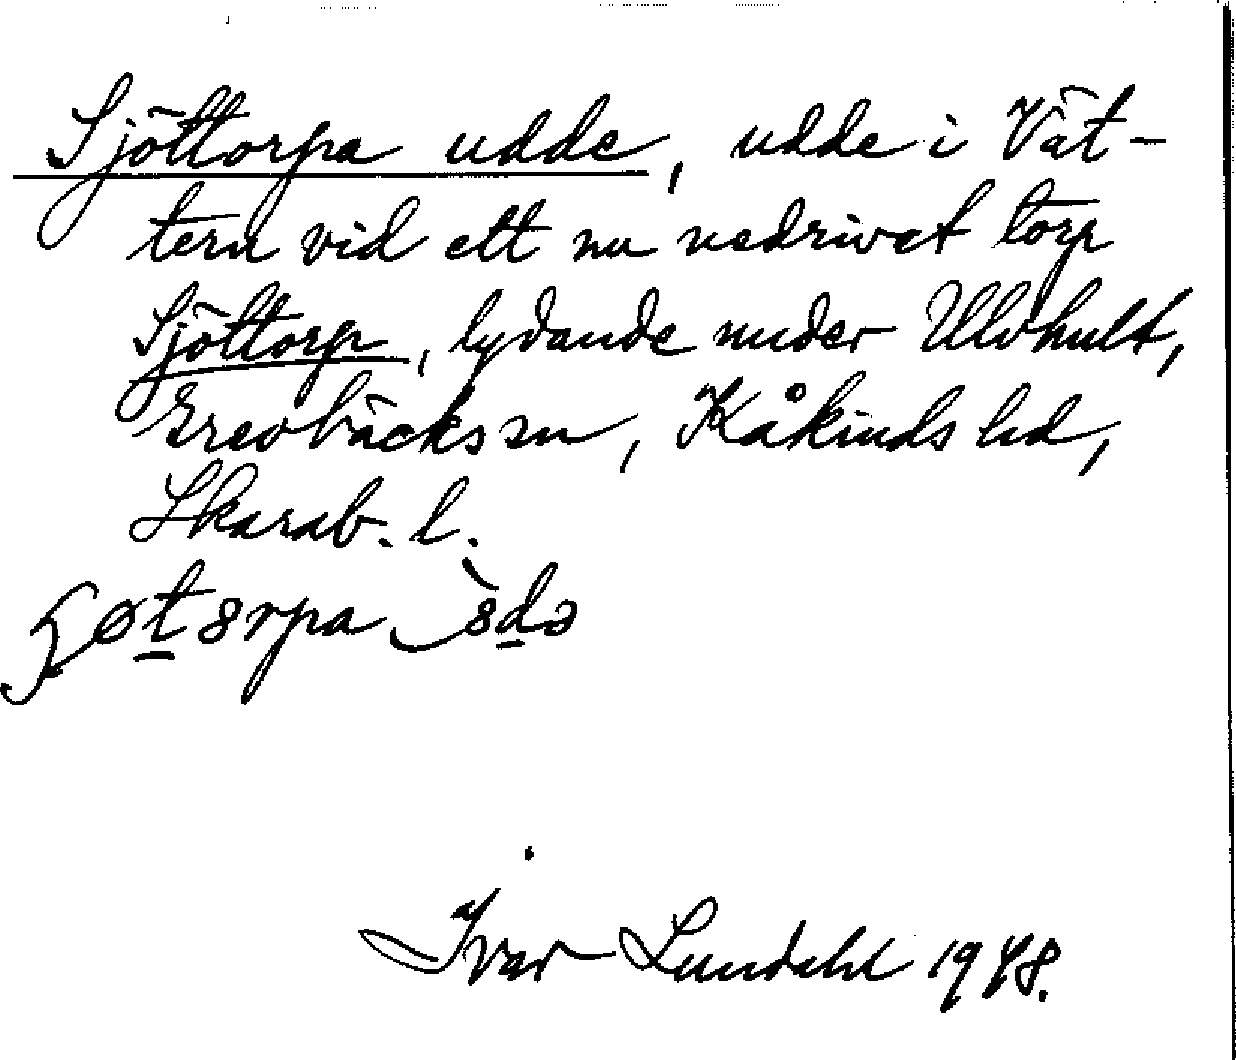 Sjöttorpa udde, udde i Vät-
tern vid ett nu nedrivet torp
Sjöttorp, lydande under Ulvhult,
Grevbäcks sn, Kåkinds hd,
Skarab. l.
Ivar Lundahl 1948.